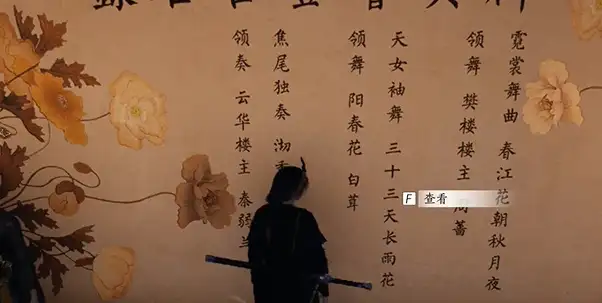 霓裳舞曲 春江花朝秋月夜
领舞 樊楼楼主 蔷
天女袖舞 三十三天长雨花
领舞 阳春花 白茸
焦尾独奏 沏
领奏 云华楼主 秦弱兰
F 查看